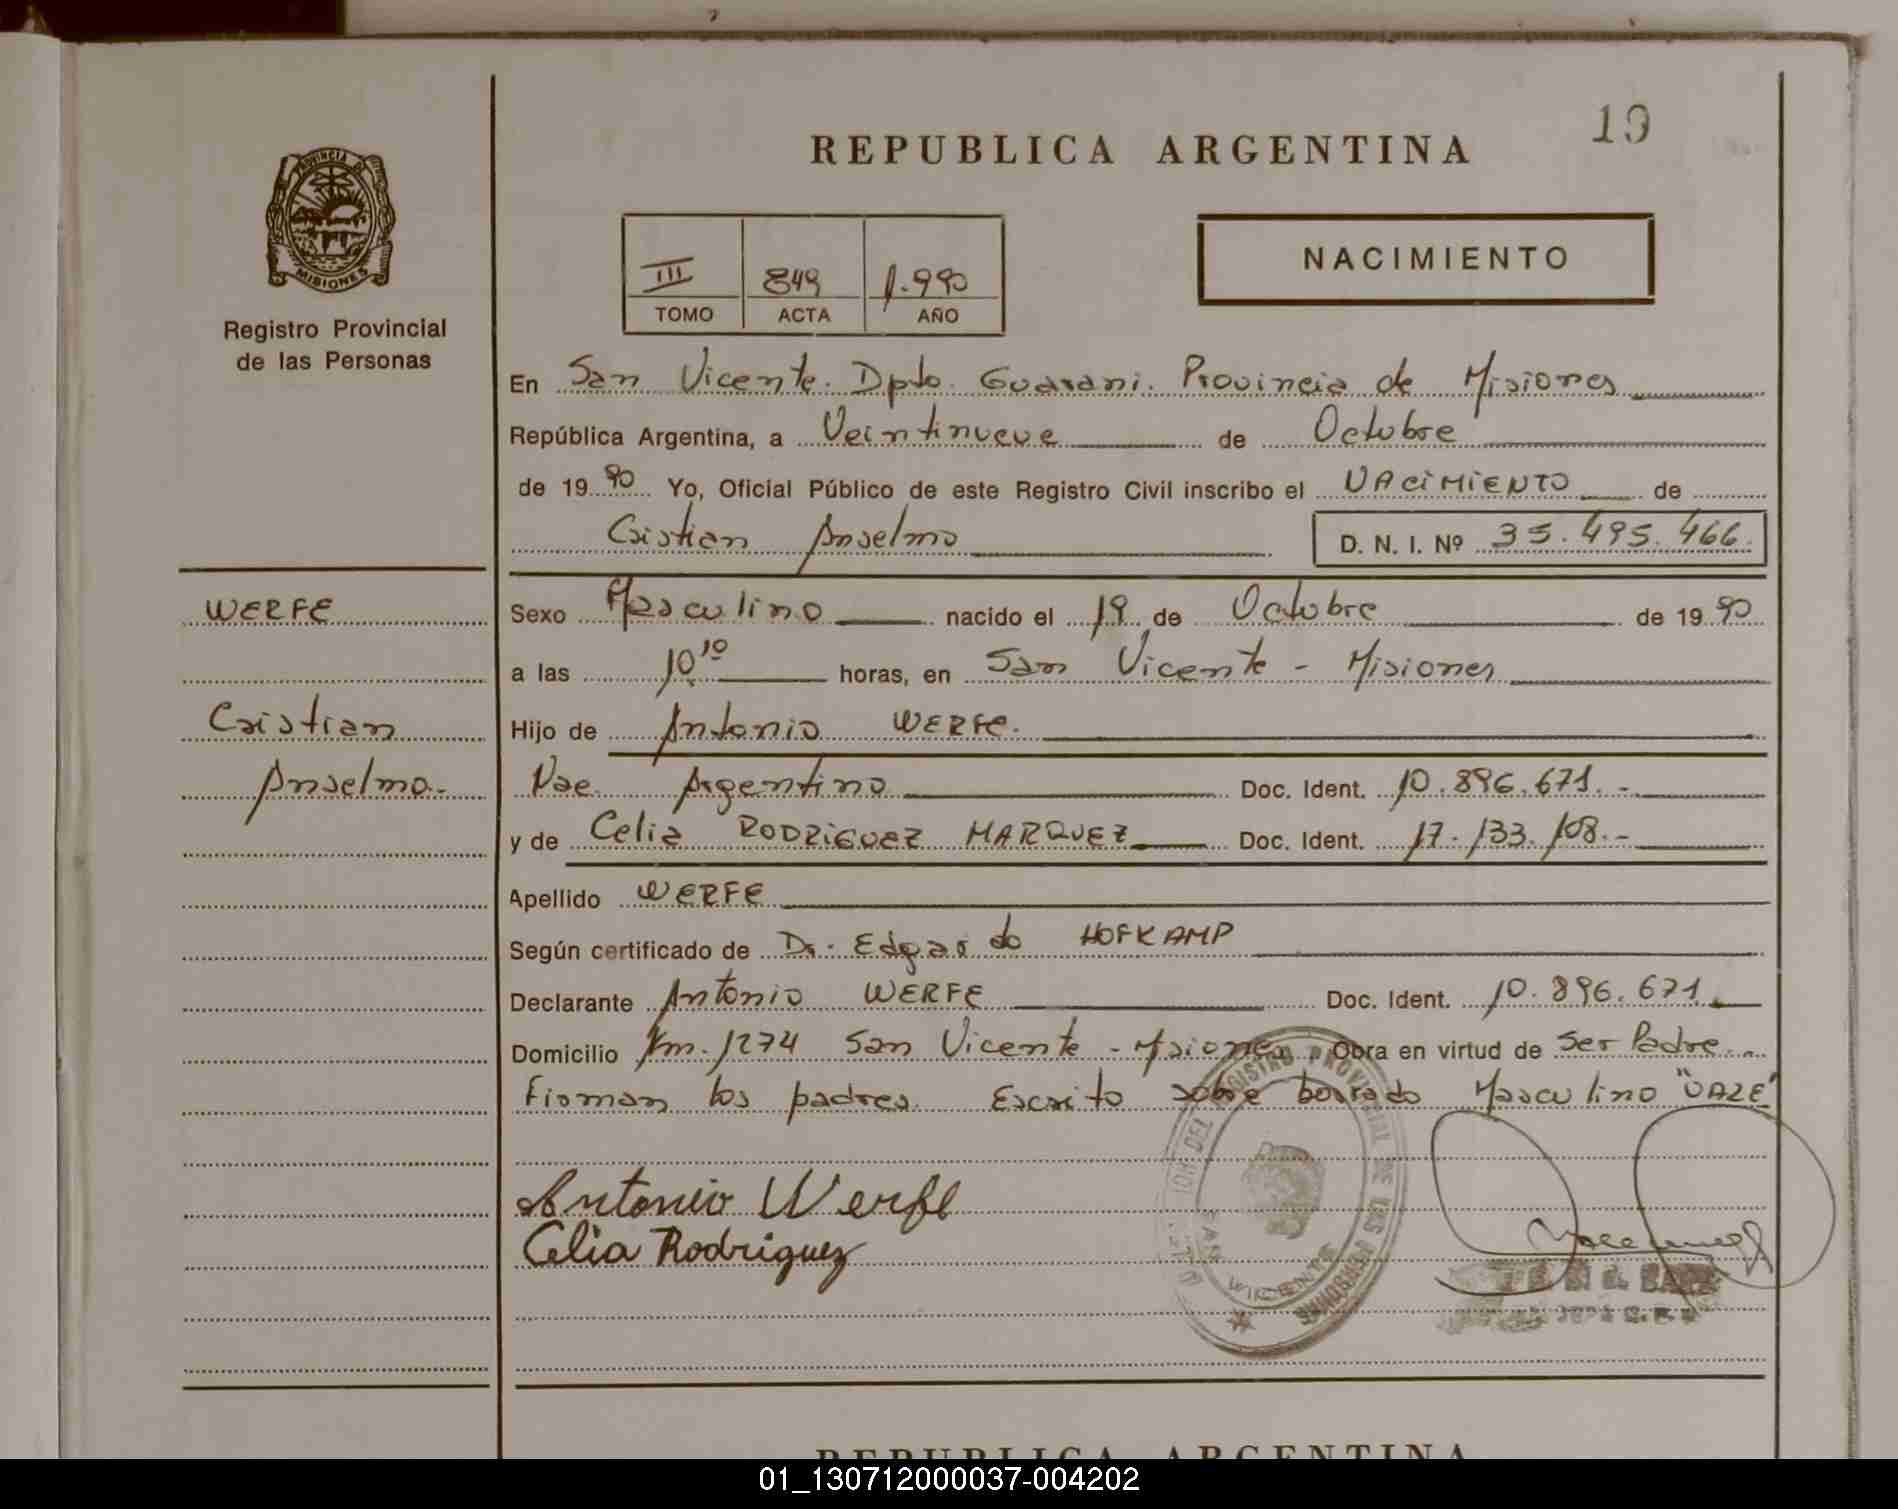 19
REPUBLICA ARGENTINA
PROVINCIA DE
MISIONES
Registro Provincial
de las Personas
III 849 1.990
TOMO ACTA AÑO
NACIMIENTO
En San Vicente. Dpto. Guarani. Provincia de Misiones
República Argentina, a Veintinueve de Octubre
de 1990 Yo, Oficial Público de este Registro Civil inscribo el NACIMIENTO de
Cristian Anselmo D. N. I. Nº 35.495.466.
WERFE
Cristian
Anselmo.-
Sexo Masculino nacido el 19 de Octubre de 1990
a las 10 10 horas, en San Vicente - Misiones
Hijo de Antonio WERFE.
Nac. Argentino Doc. Ident. 10.896.671.-
y de Celia RODRIGUEZ MARQUEZ Doc. Ident. 17.133.108.-
Apellido WERFE
Según certificado de Dr. Edgardo HOFKAMP
Declarante Antonio WERFE Doc. Ident. 10.896.671.
Domicilio Km. 1274 San Vicente - Misiones Obra en virtud de Ser Padre.
Firman los padres. Escrito sobre borrado Masculino "VALE"
Antonio Werfe
Celia Rodriguez
DEL REGISTRO PROVINCIAL DE LAS PERSONAS
SAN VICENTE
REPUBLICA ARGENTINA
01_130712000037-004202